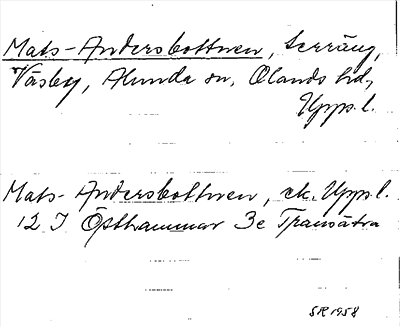 Mats-Andersbottnen, terräng,
Väsby, Alunda sn, Olands hd,
Upps. l.
Mats-Andersbottnen, ek. Upps. l.
12 I Östhammar 3c Transätra
SR 1958